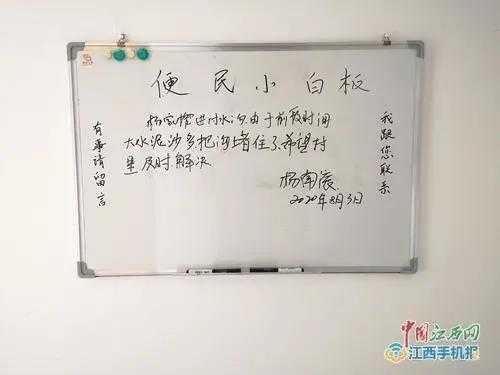 便民小白板
有事请留言
杨家塆进付水沟由于前段时间
大水泥沙多把沟堵住了希望村
里及时解决
杨南
2020年8月3日
我跟您联系
中国江西网
江西手机报